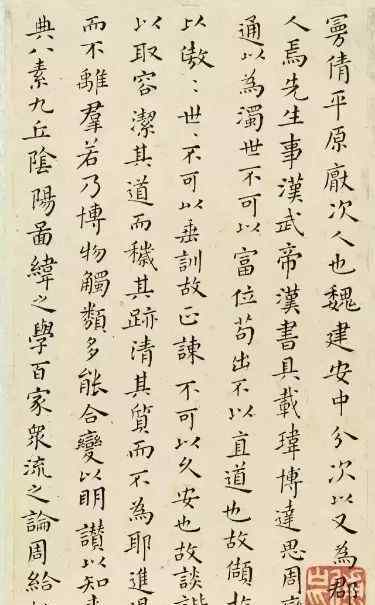 曼倩平原厭次人也魏建安中分次以又為郡
人焉先生事漢武帝漢書具載瑋博達思周
通以為濁世不可以富位苟出不以直道也故頡
以傲〻世〻不可以垂訓故正諫不可以久安也故談
以取容潔其道而穢其跡清其質而不為耶進
而不離羣若乃博物觸類多能合變以明讃以知
典八素九丘陰陽啚緯之學百家衆流之論周給